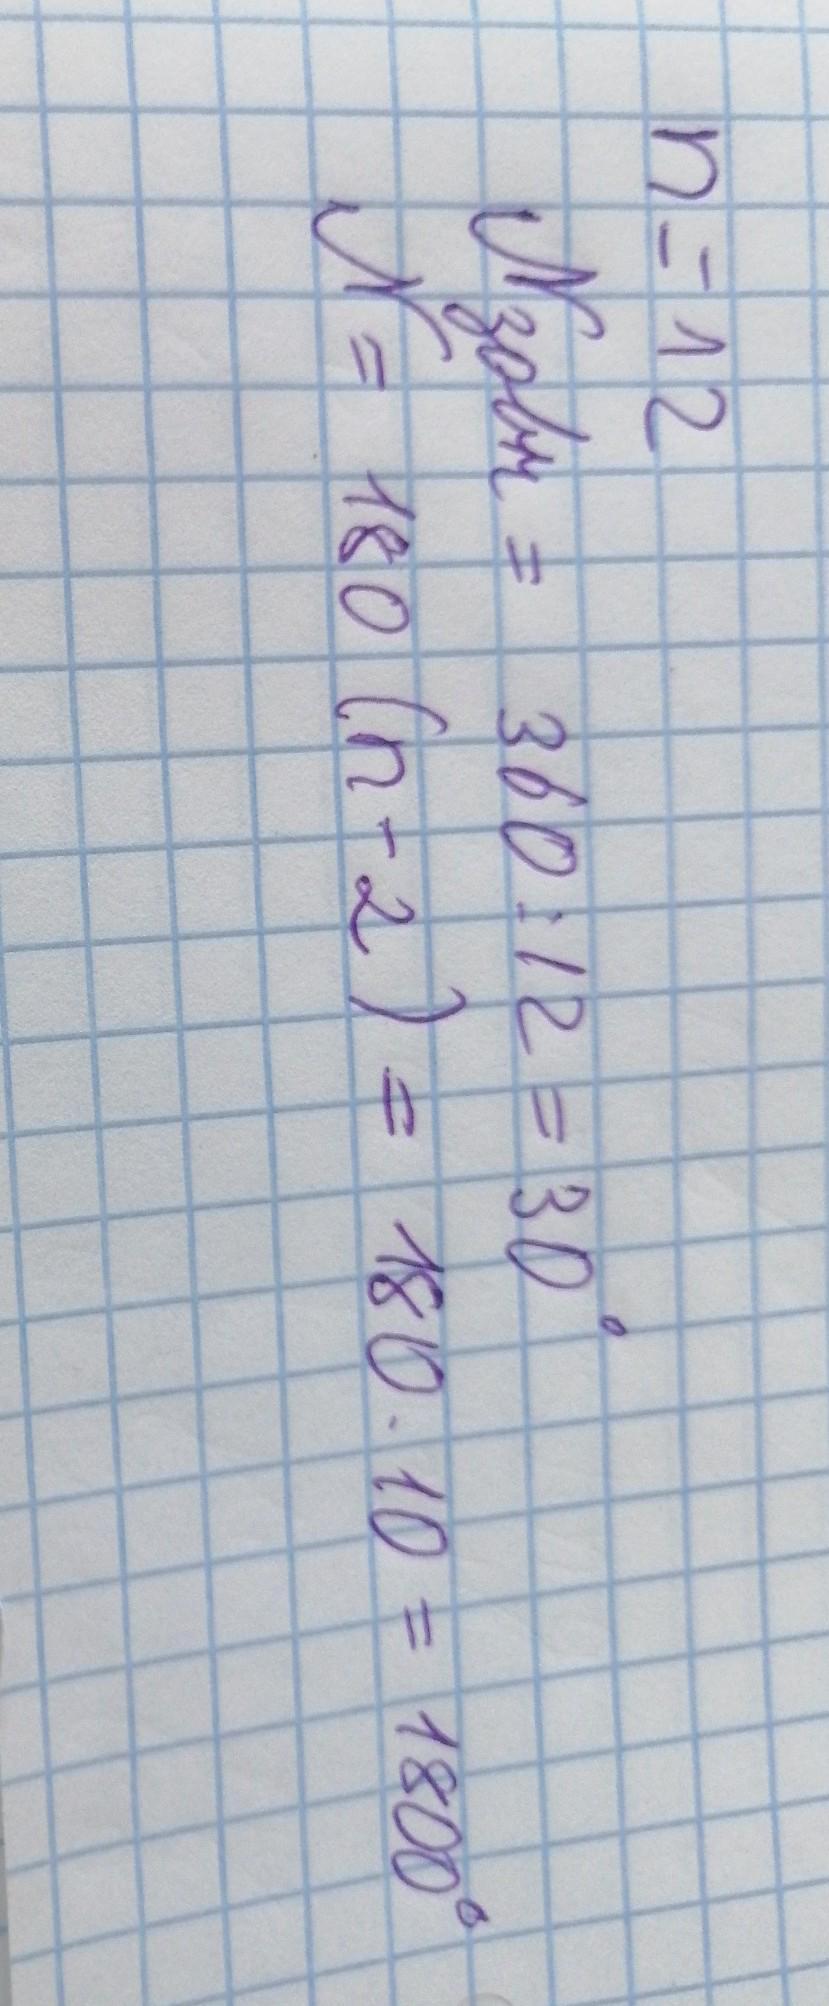 n = 12
N зовн = 360 : 12 = 30°
N = 180 (n - 2) = 180 · 10 = 1800°